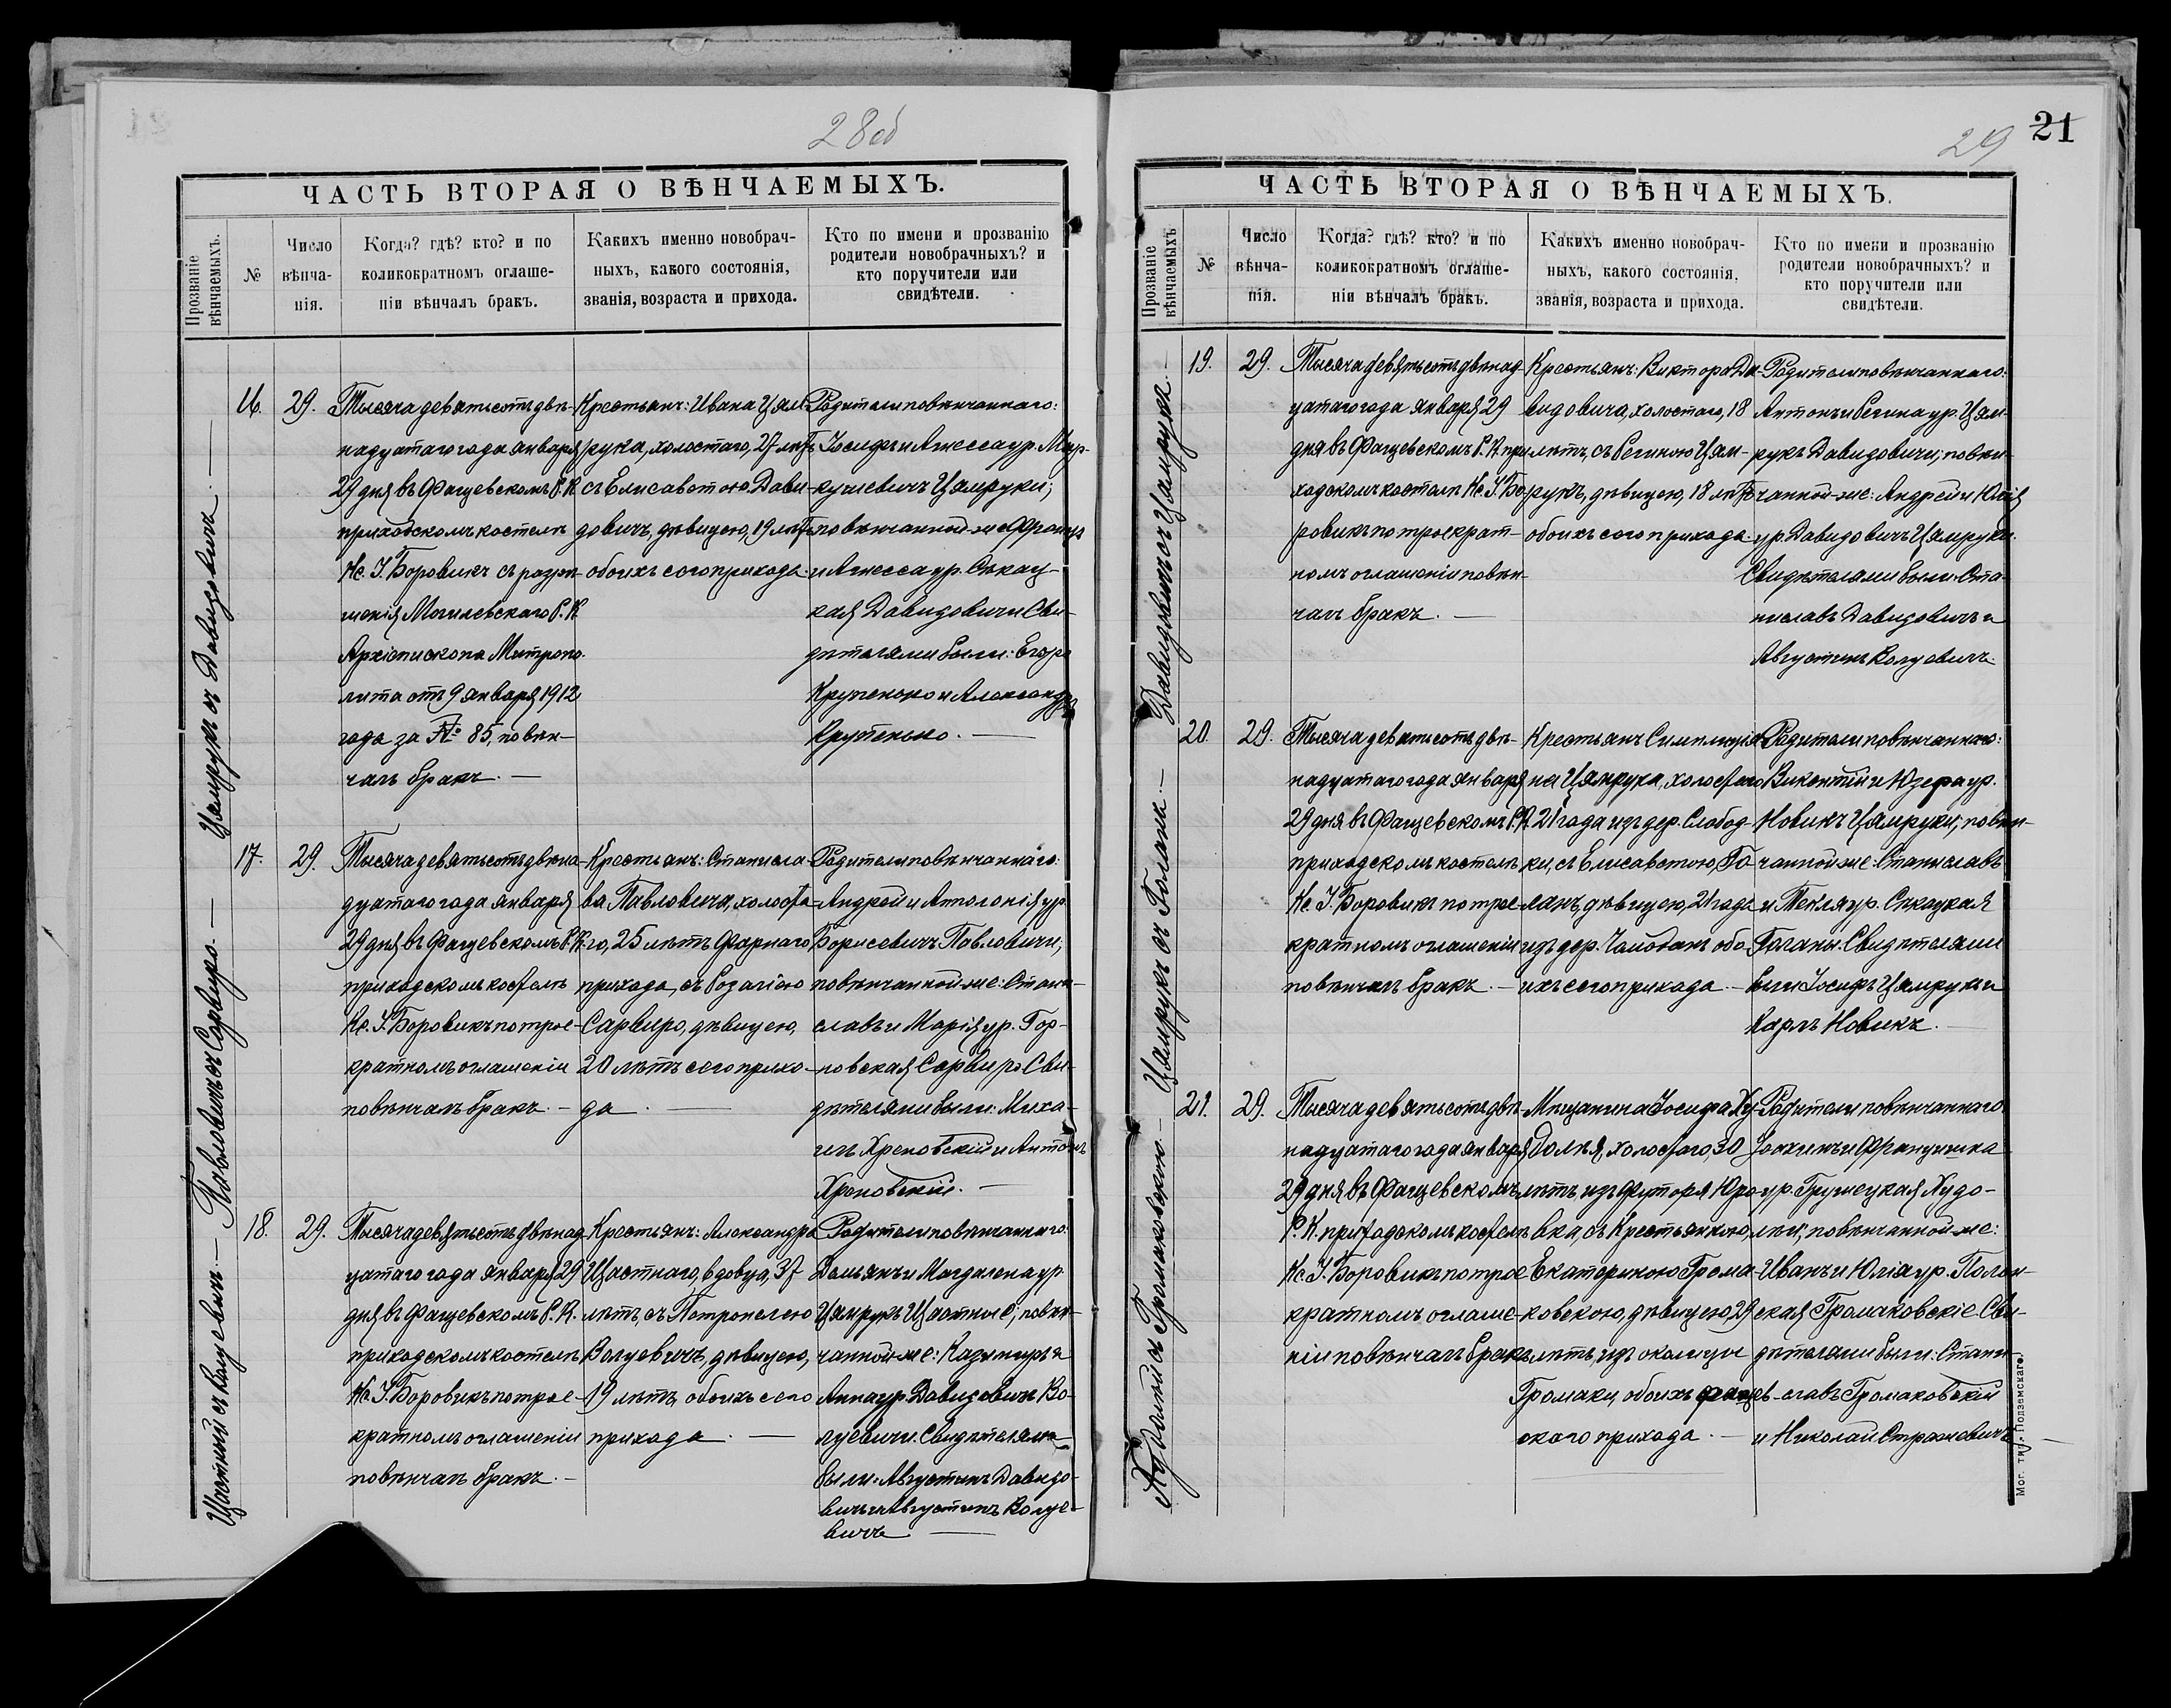 28об
ЧАСТЬ ВТОРАЯ О ВѢНЧАЕМЫХЪ.
Прозваніе вѣнчаемыхъ.
№
Число вѣнча-нія.
Когда? гдѣ? кто? и по
коликократномъ оглаше-
ніи вѣнчалъ бракъ.
Какихъ именно новобрач-
ныхъ, какого состоянія,
званія, возраста и прихода.
Кто по имени и прозванію
родители новобрачныхъ? и
кто поручители или
свидѣтели.
Цямрукъ съ Давидовичъ. —
16.
29.
Тысяча девятьсотъ двѣ-
надцатаго года января
29 дня въ Фащевскомъ Р. К.
приходскомъ костелѣ
Кс. І. Боровикъ съ разрѣ-
шенія Могилевскаго Р. К.
Архіепископа Митропо-
лита отъ 9 января 1912
года за № 85, повѣн-
чалъ бракъ. —
Крестьянъ: Ивана Цям-
рука, холостаго, 27 лѣтъ
съ Елисаветою Дави-
довичъ, дѣвицею, 19 лѣтъ
обоихъ сего прихода.
Родители повѣнчаннаго:
Іосифъ и Агнесса ур. Мир-
кулевичъ Цямруки;
повѣнчанной-же Францъ
и Агнесса ур. Сѣкац-
кая Давидовичи Сви-
дѣтелями были: Егоръ
Крупенько и Александръ
Крупенько. —
Павловичъ съ Сарвиро. —
17.
29.
Тысяча девятьсотъ двѣна-
дцатаго года января
29 дня въ Фащевскомъ Р. К.
приходскомъ костелѣ
Кс. І. Боровикъ по трое-
кратномъ оглашеніи
повѣнчалъ бракъ. —
Крестьянъ: Станисла-
ва Павловича, холоста-
го, 25 лѣтъ Фарнаго
прихода, съ Розаліею
Сарвиро, дѣвицею,
20 лѣтъ сего прихо-
да. —
Родители повѣнчаннаго:
Андрей и Апполонія ур.
Борисевичъ Павловичи,
повѣнчанной же: Стани-
славъ и Марія ур. Гор-
новская Сарвиро Сви-
дѣтелями были: Миха-
илъ Хреновскій и Антонъ
Хреновскій. —
Щастный съ Воцуевичъ —
18.
29.
Тысяча девятьсотъ двѣнад-
цатаго года января 29
дня въ Фащевскомъ Р. К.
приходскомъ костелѣ
Кс. І. Боровикъ по трое-
кратномъ оглашеніи
повѣнчалъ бракъ. —
Крестьянъ: Александра
Щастнаго, вдовца, 37
лѣтъ, съ Петронелею
Волуевичъ, дѣвицею,
19 лѣтъ, обоихъ сего
прихода. —
Родители повѣнчаннаго:
Дамьянъ и Магдалена ур.
Цямрукъ Щастные; повѣн-
чанной же: Казимиръ и
Анна ур. Давидовичъ Во-
луевичи. Свидѣтелями
были: Августинъ Давидо-
вичъ и Августинъ Волуе-
вичъ —
29
21
ЧАСТЬ ВТОРАЯ О ВѢНЧАЕМЫХЪ.
Прозваніе вѣнчаемыхъ
№
Число вѣнча-нія.
Когда? гдѣ? кто? и по
коликократномъ оглаше-
ніи вѣнчалъ бракъ.
Какихъ именно новобрач-
ныхъ, какого состоянія,
званія, возраста и прихода.
Кто по имени и прозванію
родители новобрачныхъ? и
кто поручители или
свидѣтели.
Давидовичъ съ Цямрукъ. —
19.
29.
Тысяча девятьсотъ двѣнад-
цатаго года января 29
дня въ Фащевскомъ Р. К. при-
ходскомъ костелѣ Кс. І. Бо-
ровикъ по троекрат-
номъ оглашеніи повѣн-
чалъ бракъ. —
Крестьянъ: Виктора Да-
видовича, холостаго, 18
лѣтъ, съ Региною Цям-
рукъ, дѣвицею, 18 лѣтъ
обоихъ сего прихода.
Родители повѣнчаннаго:
Антонъ и Регина ур. Цям-
рукъ Давидовичи; повѣн-
чанной-же: Андрей и Юлія
ур. Давидовичъ Цямруки.
Свидѣтелями были: Ста-
ниславъ Давидовичъ и
Августинъ Волуевичъ.
Цямрукъ съ Голанъ. —
20.
29.
Тысяча девятьсотъ двѣ-
надцатаго года января
29 дня въ Фащевскомъ Р. К.
приходскомъ костелѣ
Кс. І. Боровикъ по трое-
кратномъ оглашеніи
повѣнчалъ бракъ. —
Крестьянъ Симплиція-
на Цямрука, холостаго
21 года изъ дер. Слобод-
ки, съ Елисаветою Го-
ланъ, дѣвицею, 21 года
изъ дер. Чамоданъ обо-
ихъ сего прихода. —
Родители повѣнчаннаго:
Викентій и Юзефа ур.
Новикъ Цямруки; повѣн-
чанной же: Станиславъ
и Текля ур. Сѣкацкая
Голаны. Свидѣтелями
были Іосифъ Цямрукъ и
Карлъ Новикъ. —
Худолѣй съ Громаковскою. —
21.
29.
Тысяча девятьсотъ двѣ-
надцатаго года января
29 дня въ Фащевскомъ
Р. К. приходскомъ костелѣ
Кс. І. Боровикъ по трое-
кратномъ оглаше-
ніи повѣнчалъ бракъ
Мѣщанина Іосифа Ху-
долѣя, холостаго, 30
лѣтъ, изъ футора Юро-
вка, съ Крестьянкою,
Екатериною Грома-
ковскою, дѣвицею 29
лѣтъ, изъ околицы
Громаки, обоихъ фащев-
скаго прихода. —
Родители повѣнчаннаго
Іоахимъ и Францишка
ур. Грушецкая Худо-
лѣи; повѣнчанной же:
Иванъ и Юлія ур. Полон-
ская Громаковскіе Сви-
дѣтелями были: Стани-
славъ Громаковскій
и Николай Стражевичъ —
Мог. тип. Подземскаго